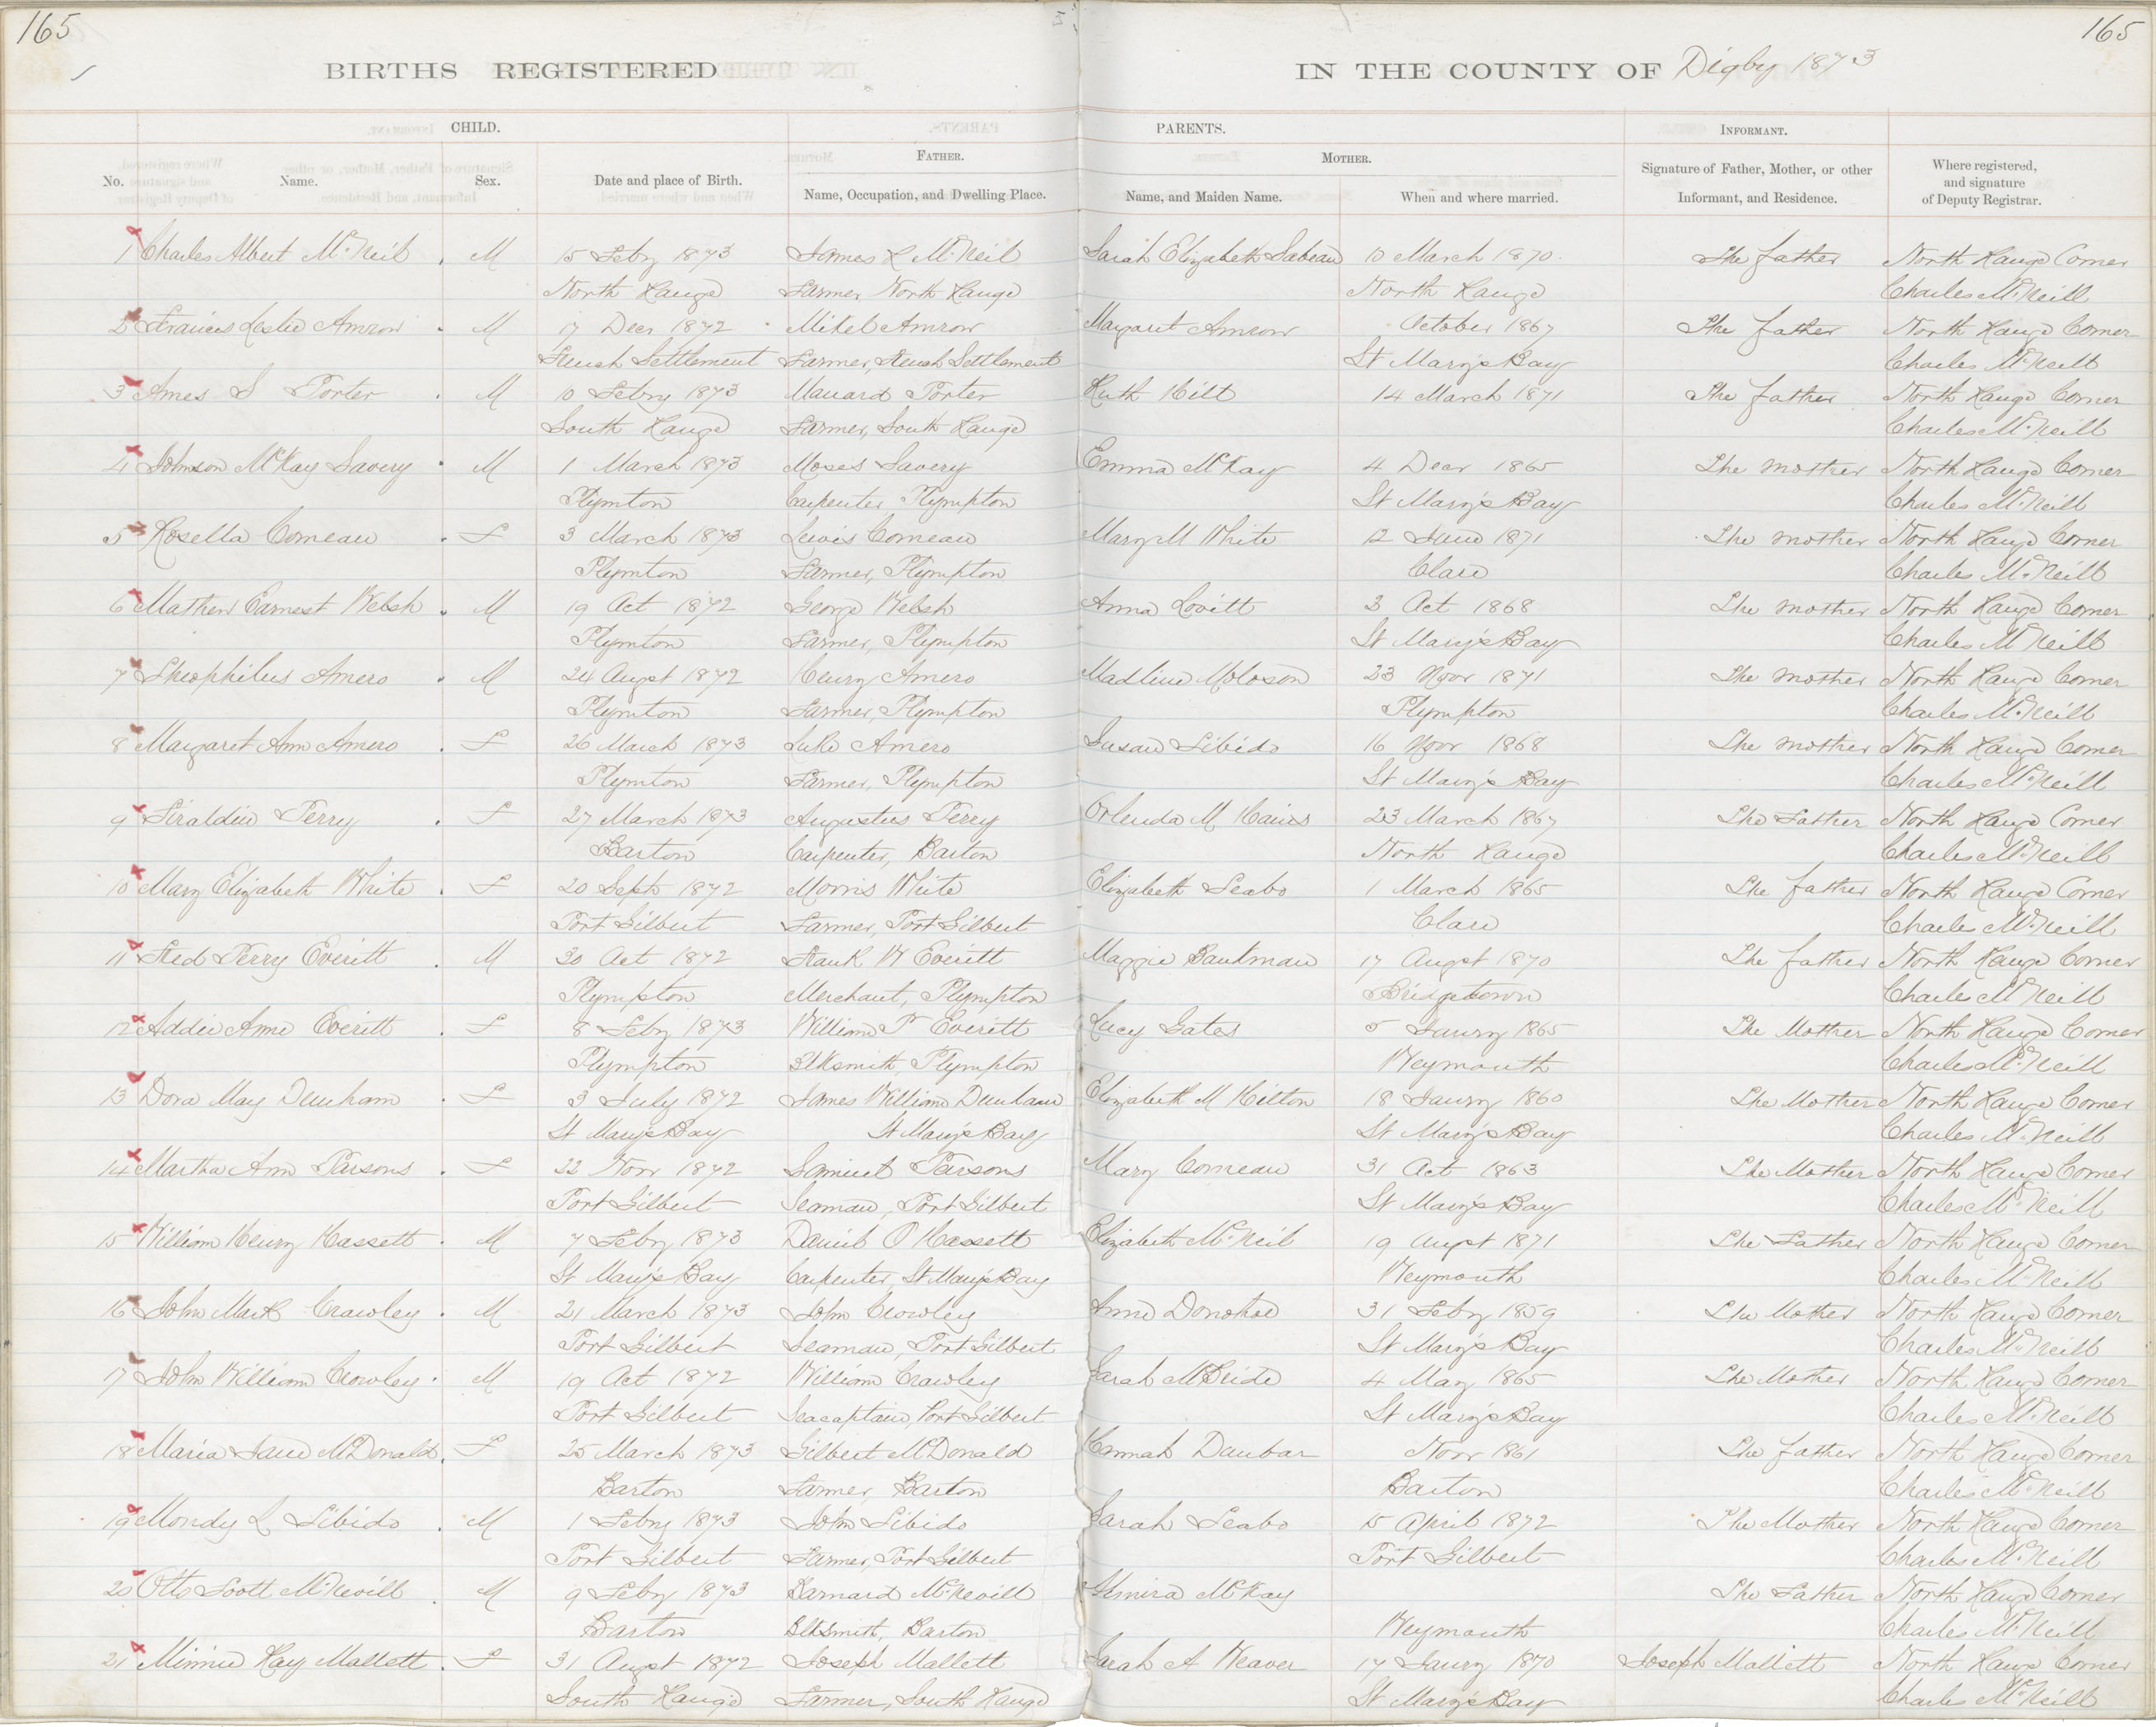 165
165
BIRTHS REGISTERED
IN THE COUNTY OF Digby 1873
CHILD.
PARENTS.
INFORMANT.
FATHER.
MOTHER.
No. Name. Sex. Date and place of Birth. Name, Occupation, and Dwelling Place. Name, and Maiden Name. When and where married. Signature of Father, Mother, or other Informant, and Residence. Where registered, and signature of Deputy Registrar.
1 Charles Albert McNeil M 15 Feby 1873 James L McNeil Sarah Elizabeth Sabean 10 March 1870 The father North Range Corner
North Range Farmer North Range North Range Charles McNeill
2 Francis Leslie Amrow M 17 Decr 1872 Mikel Amrow Margaret Amrow October 1867 The father North Range Corner
French Settlement Farmer, French Settlement St Mary's Bay Charles McNeill
3 Ames S Porter M 10 Feby 1873 Porter Ruth Hill 14 March 1871 The father North Range Corner
South Range Farmer, South Range Charles McNeill
4 Johnson McKay Savery M 1 March 1873 Moses Savery Emma McKay 4 Decr 1865 The mother North Range Corner
Plymton Carpenter, Plympton St Mary's Bay Charles McNeill
5 Rosella Comeau F 3 March 1873 Lewis Comeau Mary M White 12 1871 The mother North Range Corner
Plymton Farmer, Plympton Clare Charles McNeill
6 Mathew Earnest Welsh M 19 Oct 1872 George Welsh Anna Lovitt 3 Oct 1868 The mother North Range Corner
Plymton Farmer, Plympton St Mary's Bay Charles McNeill
7 Theophilus Amero M 24 Augst 1872 Henry Amero Madline 23 Novr 1871 The mother North Range Corner
Plymton Farmer, Plympton Plympton Charles McNeill
8 Margaret Ann Amero F 26 March 1873 Luke Amero Susan Libido 16 Novr 1868 The mother North Range Corner
Plymton Farmer, Plympton St Mary's Bay Charles McNeill
9 Perry F 27 March 1873 Augustus Perry Orlenda M Haines 23 March 1867 The Father North Range Corner
Barton Carpenter, Barton North Range Charles McNeill
10 Mary Elizabeth White F 20 Sept 1872 Morris White Elizabeth Seabo 1 March 1865 The father North Range Corner
Port Gilbert Farmer, Port Gilbert Clare Charles McNeill
11 Fred Perry Everitt M 30 Oct 1872 Frank W Everitt Maggie 17 Augst 1870 The father North Range Corner
Plympton Merchant, Plympton Bridgetown Charles McNeill
12 Addie Anne Everitt F 8 Feby 1873 William P Everitt Lucy Gates 5 Janry 1865 The Mother North Range Corner
Plympton Blksmith, Plympton Weymouth Charles McNeill
13 Dora May Dunham F 3 July 1872 James William Dunham Elizabeth M Hilton 18 Janry 1860 The Mother North Range Corner
St Mary's Bay St Mary's Bay St Mary's Bay Charles McNeill
14 Martha Ann Parsons F 22 Novr 1872 Samuel Parsons Mary Comeau 31 Oct 1863 The Mother North Range Corner
Port Gilbert Seaman, Port Gilbert St Mary's Bay Charles McNeill
15 William Henry Hassett M 7 Feby 1873 Daniel O Hassett Elizabeth McNeil 19 Augst 1871 The Father North Range Corner
St Mary's Bay Carpenter, St Mary's Bay Weymouth Charles McNeill
16 John Mark Crawley M 21 March 1873 John Crowley Anne Donohoe 31 Feby 1859 The Mother North Range Corner
Port Gilbert Seaman, Port Gilbert St Mary's Bay Charles McNeill
17 John William Crowley M 19 Oct 1872 William Crawley Sarah McBride 4 May 1865 The Mother North Range Corner
Port Gilbert Seacaptain, Port Gilbert St Mary's Bay Charles McNeill
18 Maria Jane McDonald F 25 March 1873 Gilbert McDonald Hannah Dunbar Novr 1861 The father North Range Corner
Barton Farmer, Barton Barton Charles McNeill
19 Mondy L Libido M 1 Feby 1873 John Libido Sarah Seabo 15 April 1872 The Mother North Range Corner
Port Gilbert Farmer, Port Gilbert Port Gilbert Charles McNeill
20 Otto Scott McNevill M 9 Feby 1873 Barnard McNevill Elmira McKay The Father North Range Corner
Barton Blksmith, Barton Weymouth Charles McNeill
21 Minnie May Mallett F 31 Augst 1872 Joseph Mallett Sarah A Weaver 17 Janry 1870 Joseph Mallett North Range Corner
South Range Farmer, South Range St Mary's Bay Charles McNeill